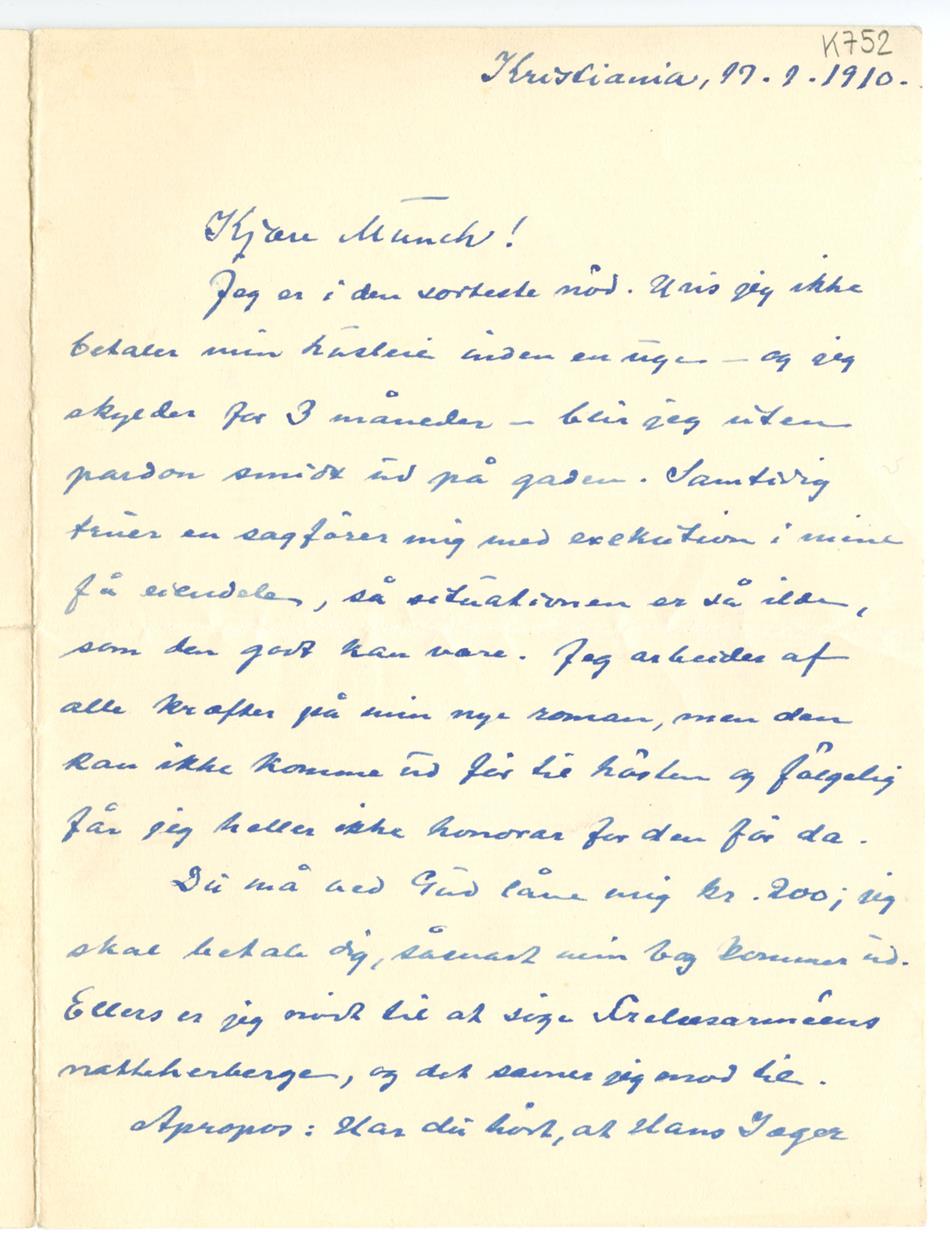 K752
Kristiania, 17.1.1910.
Kjære Munch!
Jeg er i den sorteste nød. Hvis jeg ikke
betaler min husleie inden en uge – og jeg
skylder for 3 måneder – blir jeg uten
pardon smidt ud på gaden. Samtidig
truer en sagfører mig med exekution i mine
få eiendele, så situationen er så ilde,
som den godt kan være. Jeg arbeider af
alle kræfter på min nye roman, men den
kan ikke komme ud før til høsten og følgelig
får jeg heller ikke honorar for den før da.
Du må ved Gud låne mig kr. 200; jeg
skal betale dig, såsnart min bog kommer ud.
Ellers er jeg nødt til at søge Frelsesarméens
natteherberge, og det savner jeg mod til.
Apropos: Har du hørt, at Hans Jæger